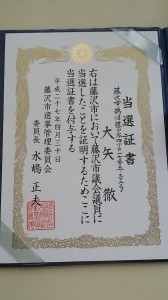 当選証書
藤沢市
大矢徹
右は藤沢市において藤沢市議会議員に
当選したことを証明するためここに
当選証書を付与する
平成二十七年四月三十日
藤沢市選挙管理委員会
委員長 水嶋正夫